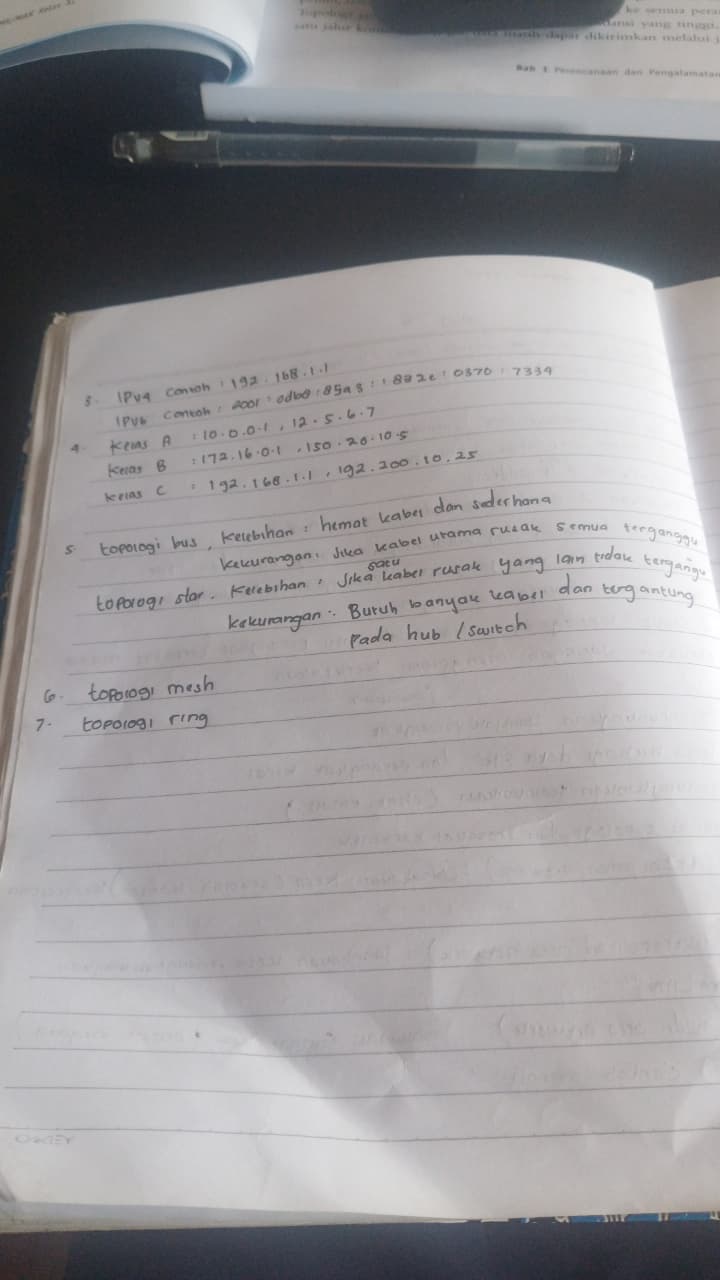 ke semua pera
Topologi
dansi yang tinggi,
satu jalur
masih dapat dikirimkan melalui j
Bab 1 Perencanaan dan Pengalamatan
3. IPv4 contoh : 192.168.1.1
IPv6 contoh : 2001:0db8:85a3::8a2e:0370:7334
4. kelas A : 10.0.0.1, 12.5.6.7
kelas B : 172.16.0.1, 150.20.10.5
kelas C : 192.168.1.1, 192.200.10.25
5. topologi bus, kelebihan : hemat kabel dan sederhana
kekurangan : Jika kabel utama rusak semua terganggu
topologi star. kelebihan : Jika satu kabel rusak yang lain tidak tergangu
kekurangan : Butuh banyak kabel dan tergantung
pada hub / switch
6. topologi mesh
7. topologi ring